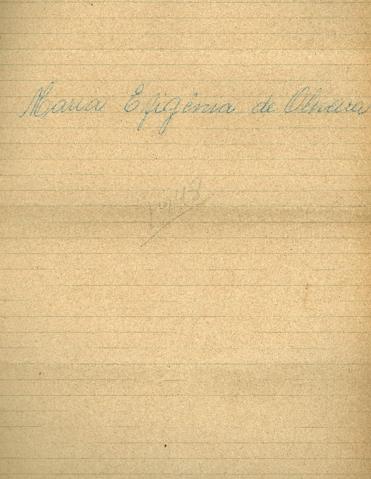 Maria Efigênia de Oliveira